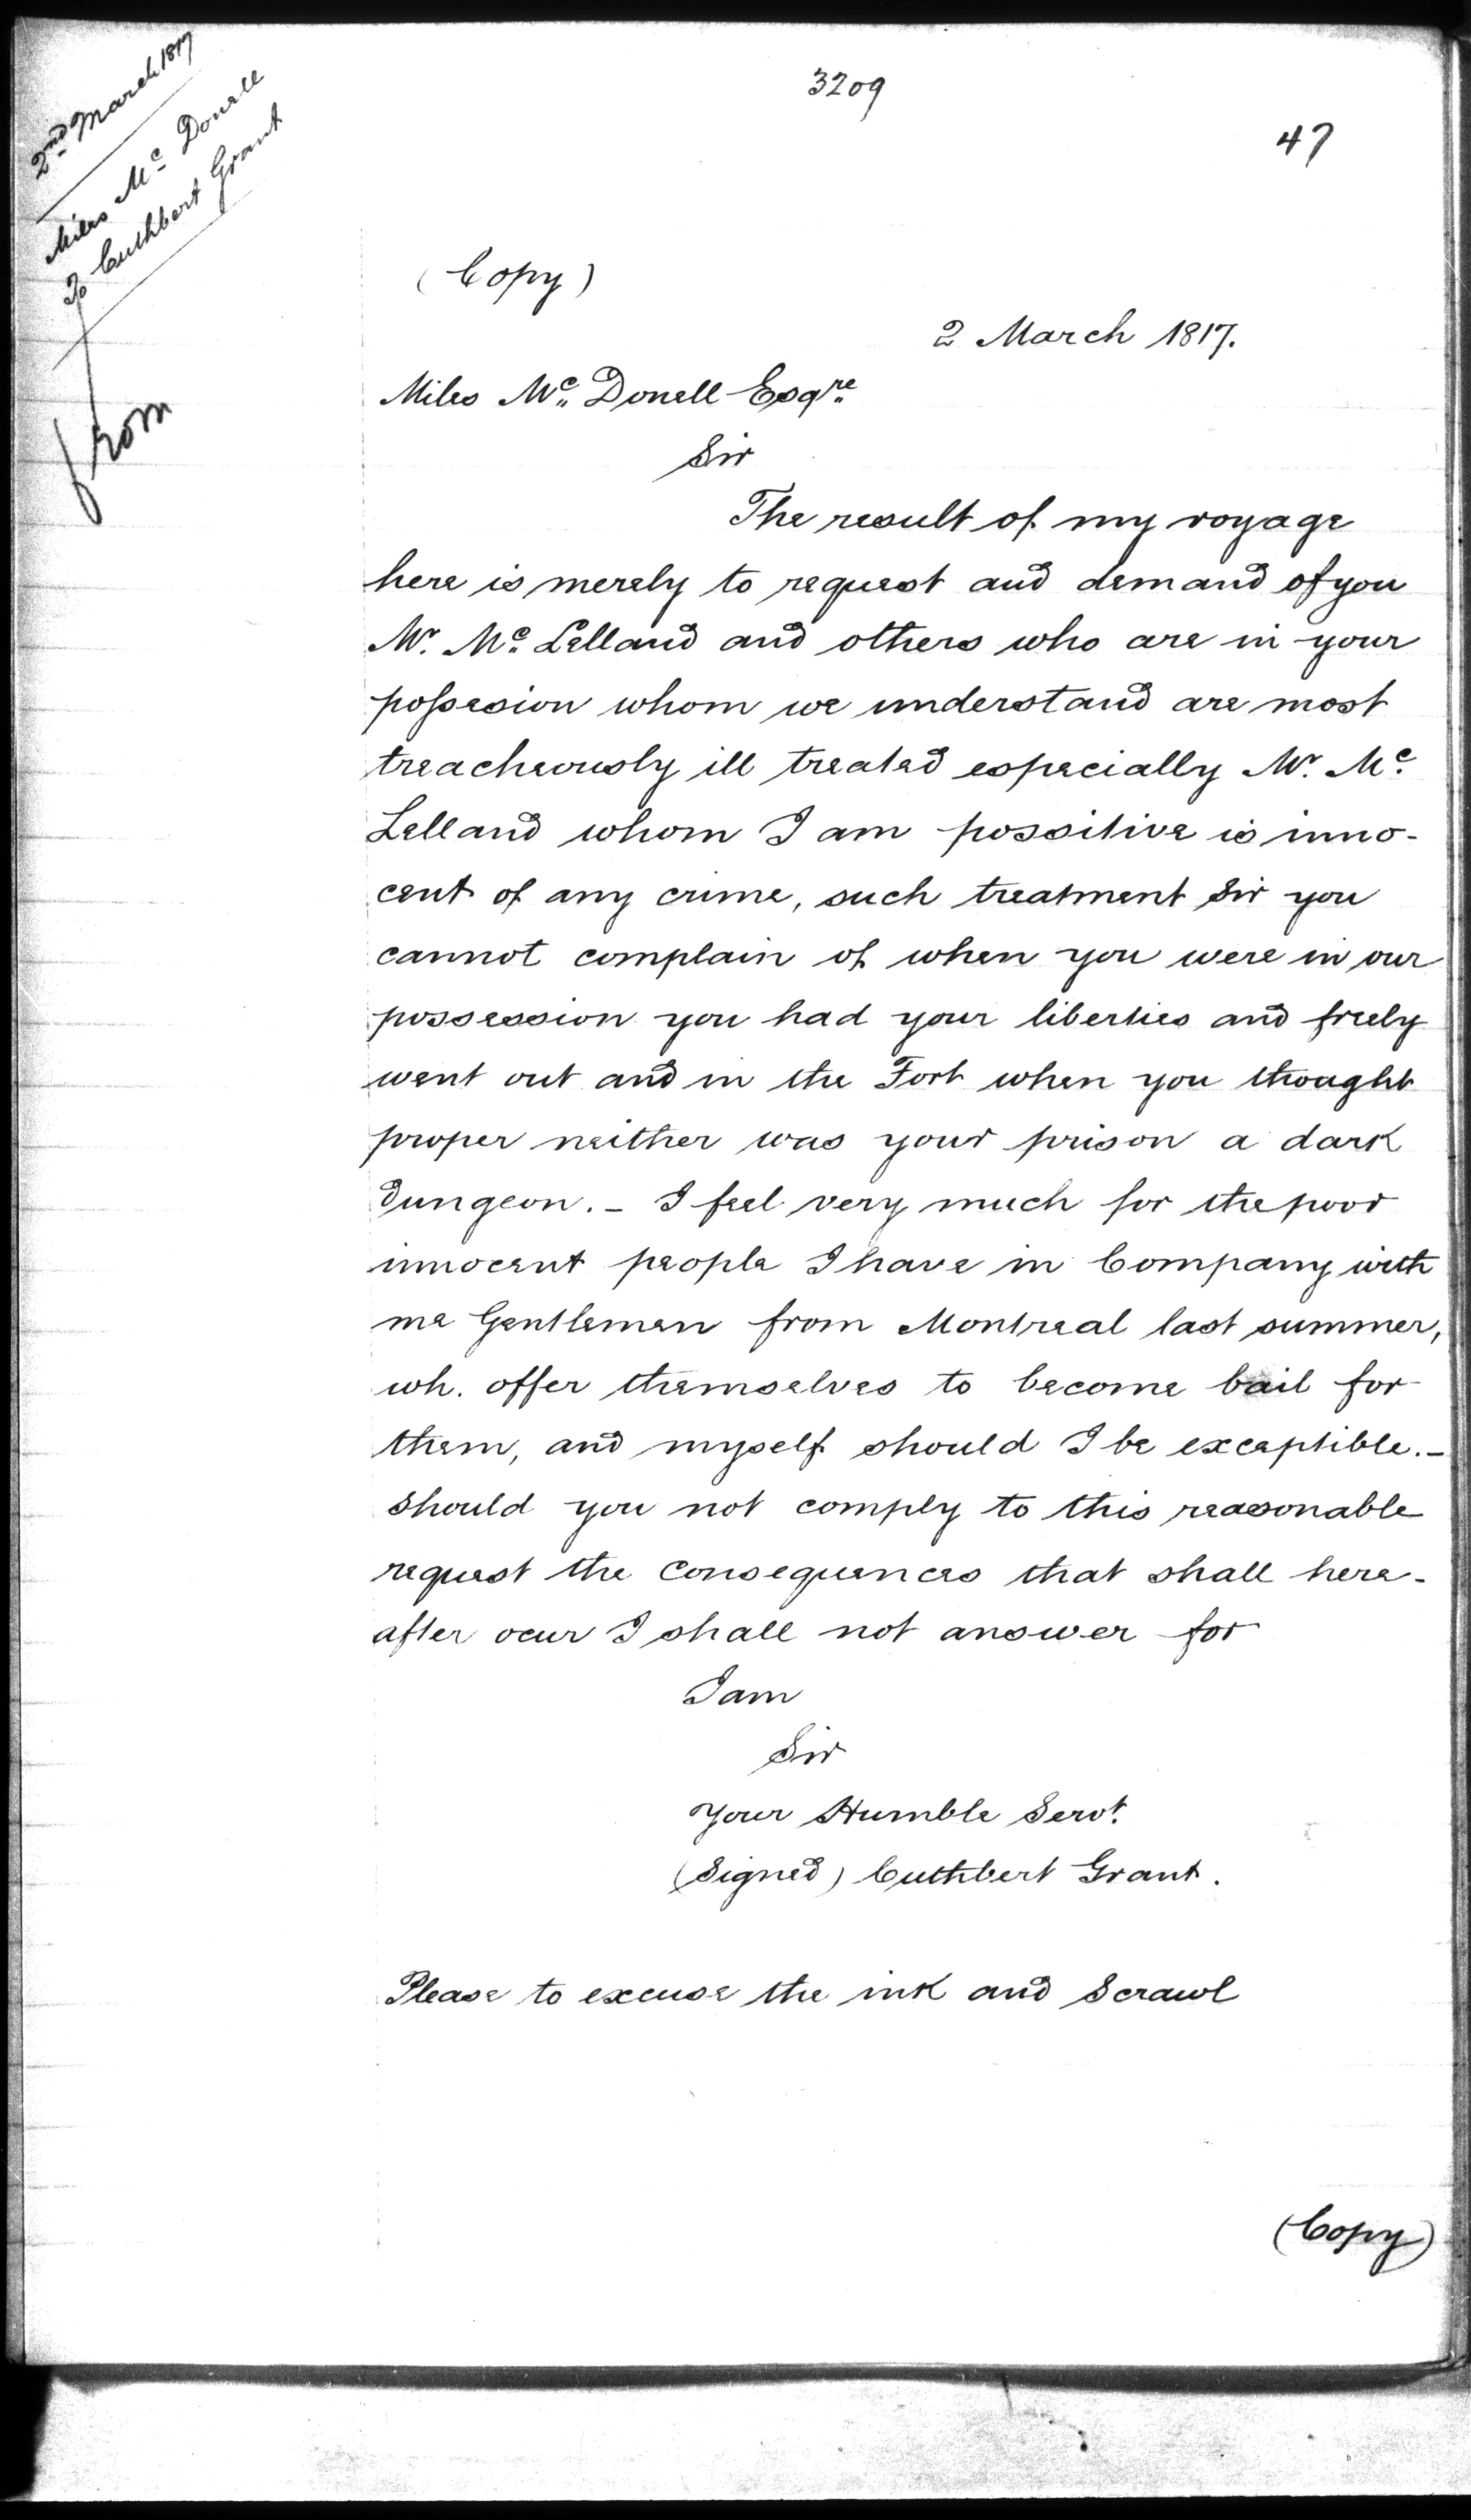 3209
47
2nd March 1817
Miles Mc Donell
To Cuthbert Grant
from
(Copy)
2 March 1817.
Miles Mc Donell Esqre
Sir
The result of my voyage
here is merely to request and demand of you
Mr. Mc Lelland and others who are in your
possesion whom we understand are most
treacheously ill treated especially Mr. Mc
Lelland whom I am possitive is inno-
cent of any crime, such treatment Sir you
cannot complain of when you were in our
possession you had your liberties and freely
went out and in the Fort when you thought
proper neither was your prison a dark
dungeon. - I feel very much for the poor
innocent people I have in Company with
me Gentlemen from Montreal last summer,
wh. offer themselves to become bail for
them, and myself should I be exceptible. -
should you not comply to this reasonable
request the consequences that shall here-
after ocur I shall not answer for
I am
Sir
Your Humble Servt.
(Signed) Cuthbert Grant.
Please to excuse the ink and Scrawl
(Copy)